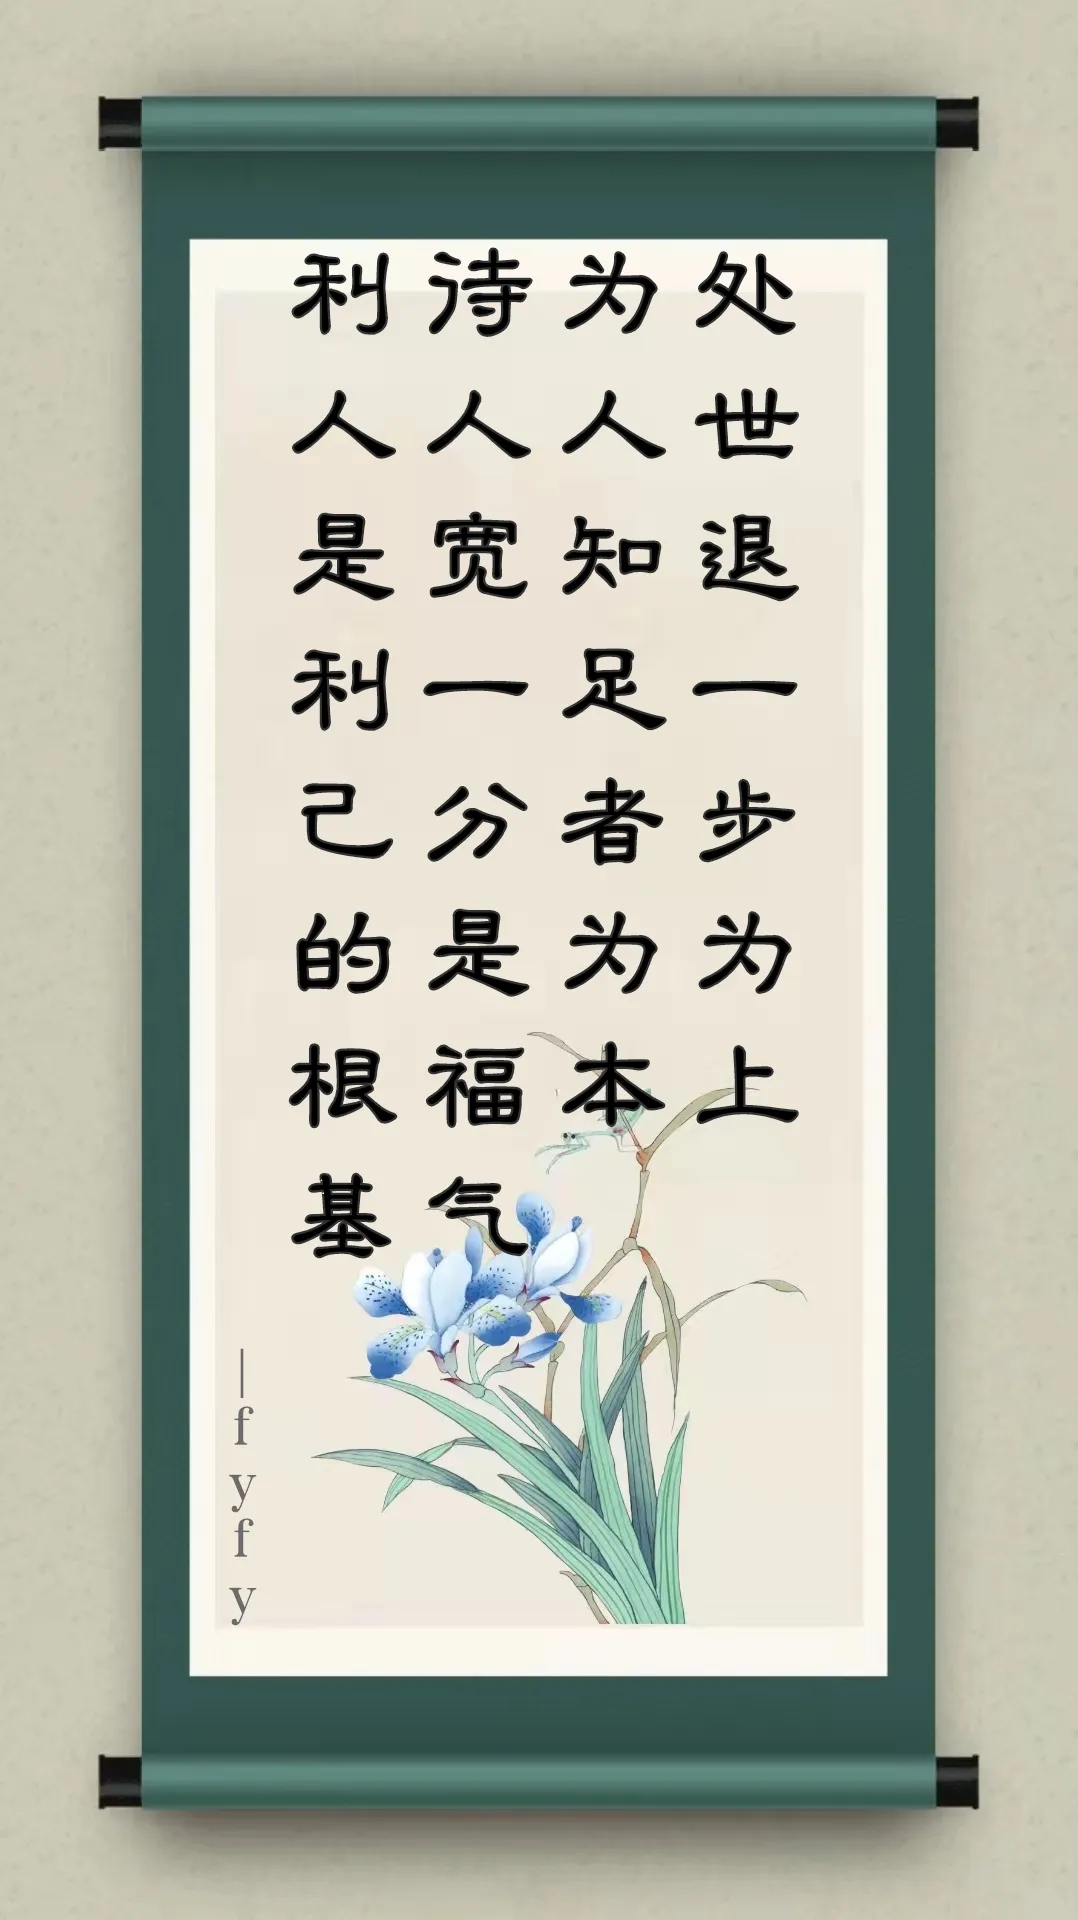 处世退一步为上
为人知足者为本
待人宽一分是福气
利人是利己的根基
|fyfy